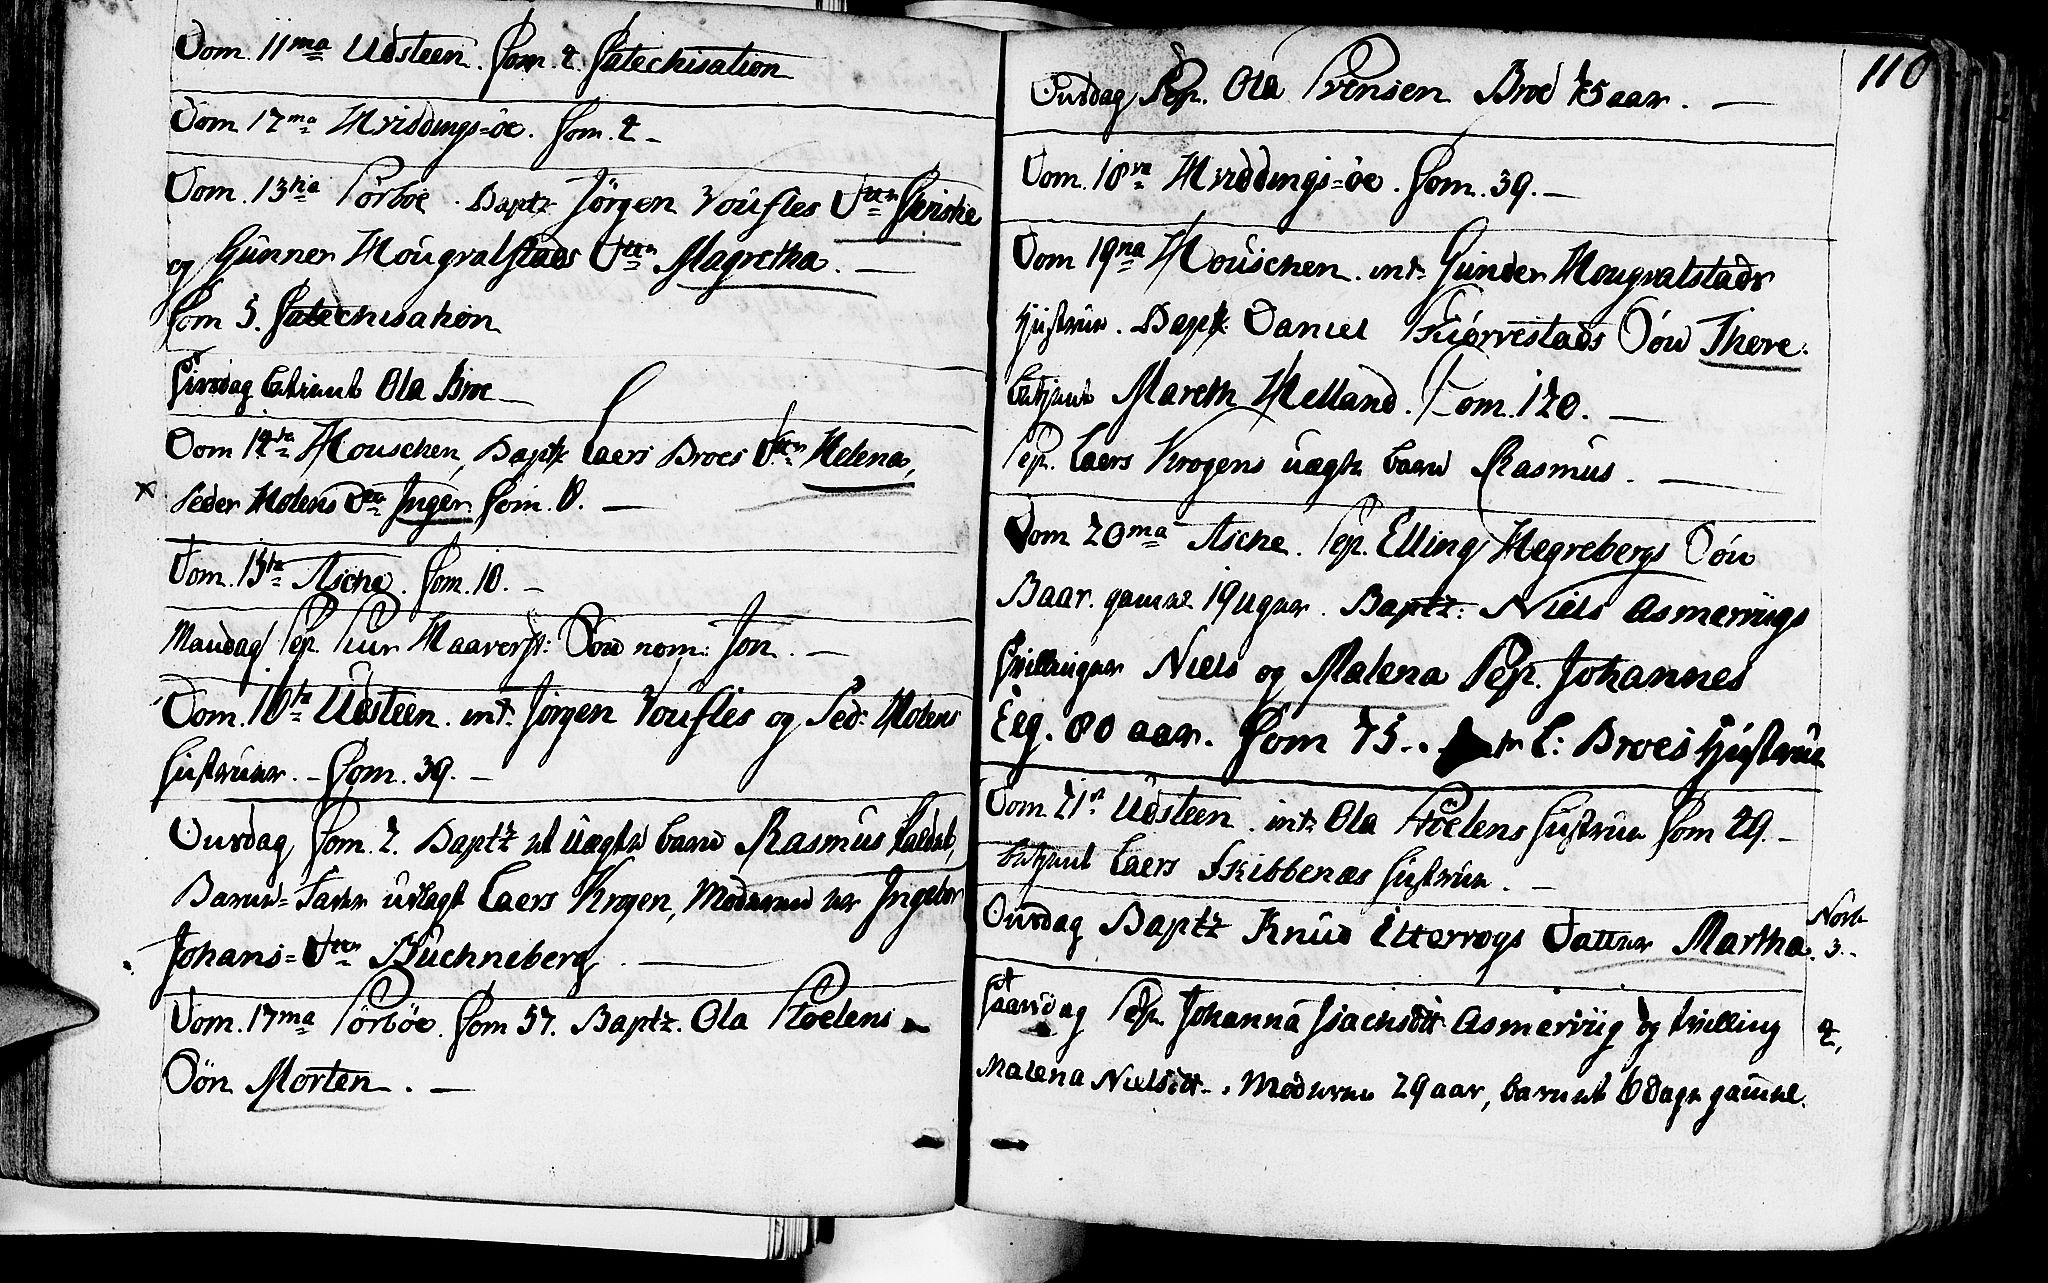 Dom. 11ma Udsteen. Com. 4. Catechisation
Dom. 12ma Hviddings=öe. Com. 4 –
Dom. 13tia Sörböe. Baptz Jörgen Voufles Dttr Christie
og Gunner Hougvalstads Dttr Magretha. –
Com 5. Catechisation
Tirsdag betient Ola Broe –
Dom 14ta Houschen, Baptz Laers Broes Dttr Helena,
x Peder Holens Dttr Inger. Com. 8. –
Dom. 15ta Asche. Com. 10. –
Mandag Sep. Siur Haaverst: Sön nom: Jon. –
Dom. 16ta Udsteen. int. Jörgen Voufles og Ped: Holens
Hustruer. – Com. 39. –
Onsdag Com. 2. Baptz et uægte barn Rasmus kaldet,
Barne=Fader udlagt Laers Krogen, Moderen er Ingebor
Johans= Dttr Buchneberg. –
Dom. 17ma Sörböe. Com 57. Baptz. Ola Floelens
Sön Morten. –
110
Onsdag Sep. Ola Svensen Broe 75 aar. –
Dom. 18va Hviddings=öe. Com. 39. –
Dom 19na Houschen. int. Gunder Hougvalstads
Hustrue. Baptz: Daniel Biörrestads Sön Thore.
betjent Mareth Helland. Com. 120. –
Sep. Laers Krogens uægte barn Rasmus. –
Dom 20ma Asche. Sep. Elling Hegrebergs Sön
Baar. gamel 19 uger. Baptz: Niels Asmerviigs
tvillinger Niels og Malena Sep. Johannes
Eeg. 80 aar. Com 75. . int L: Broes Hustrue
Dom. 21a Udsteen. int. Ola Floelens Hustrue Com 29. –
betjent Laers Skibbenæs Hustrue. –
Onsdag Baptz Knud Etterrogs Datter Martha. Novb 3. –
Sep. Johanna Isachsdtt Asmerviig og tvilling 4,
Malena Nielsdtt –. Moderen 29 aar, barnet 6 dage gamel.